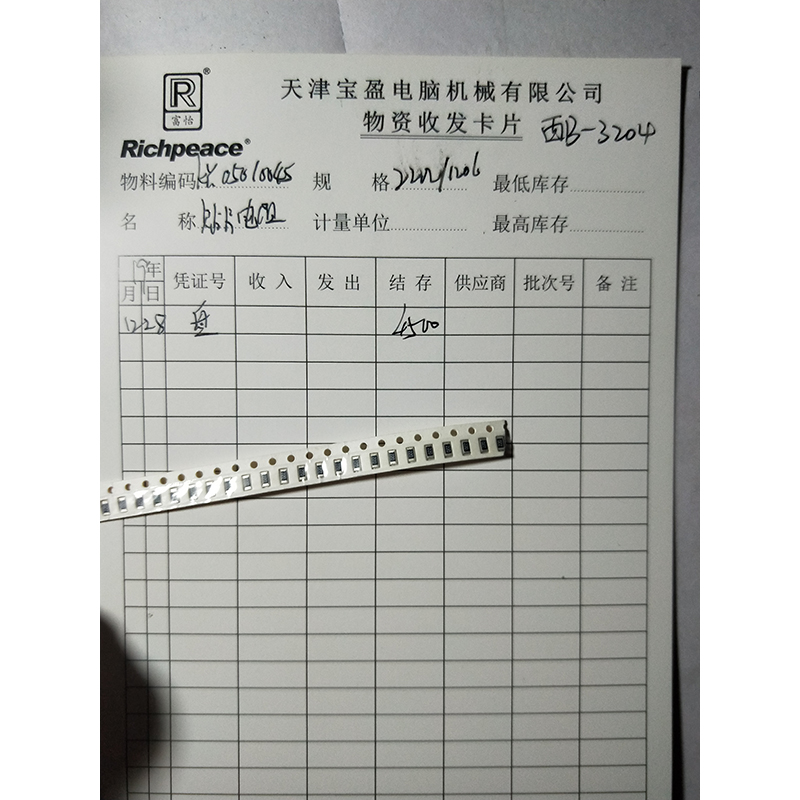 R®
富怡
Richpeace®
天津宝盈电脑机械有限公司
物资收发卡片 西B-3204
物料编码 05010045 规格 222J/1206 最低库存
名称 贴片电阻 计量单位 最高库存
19年 凭证号 收入 发出 结存 供应商 批次号 备注
月 日
12 28 盘 4500